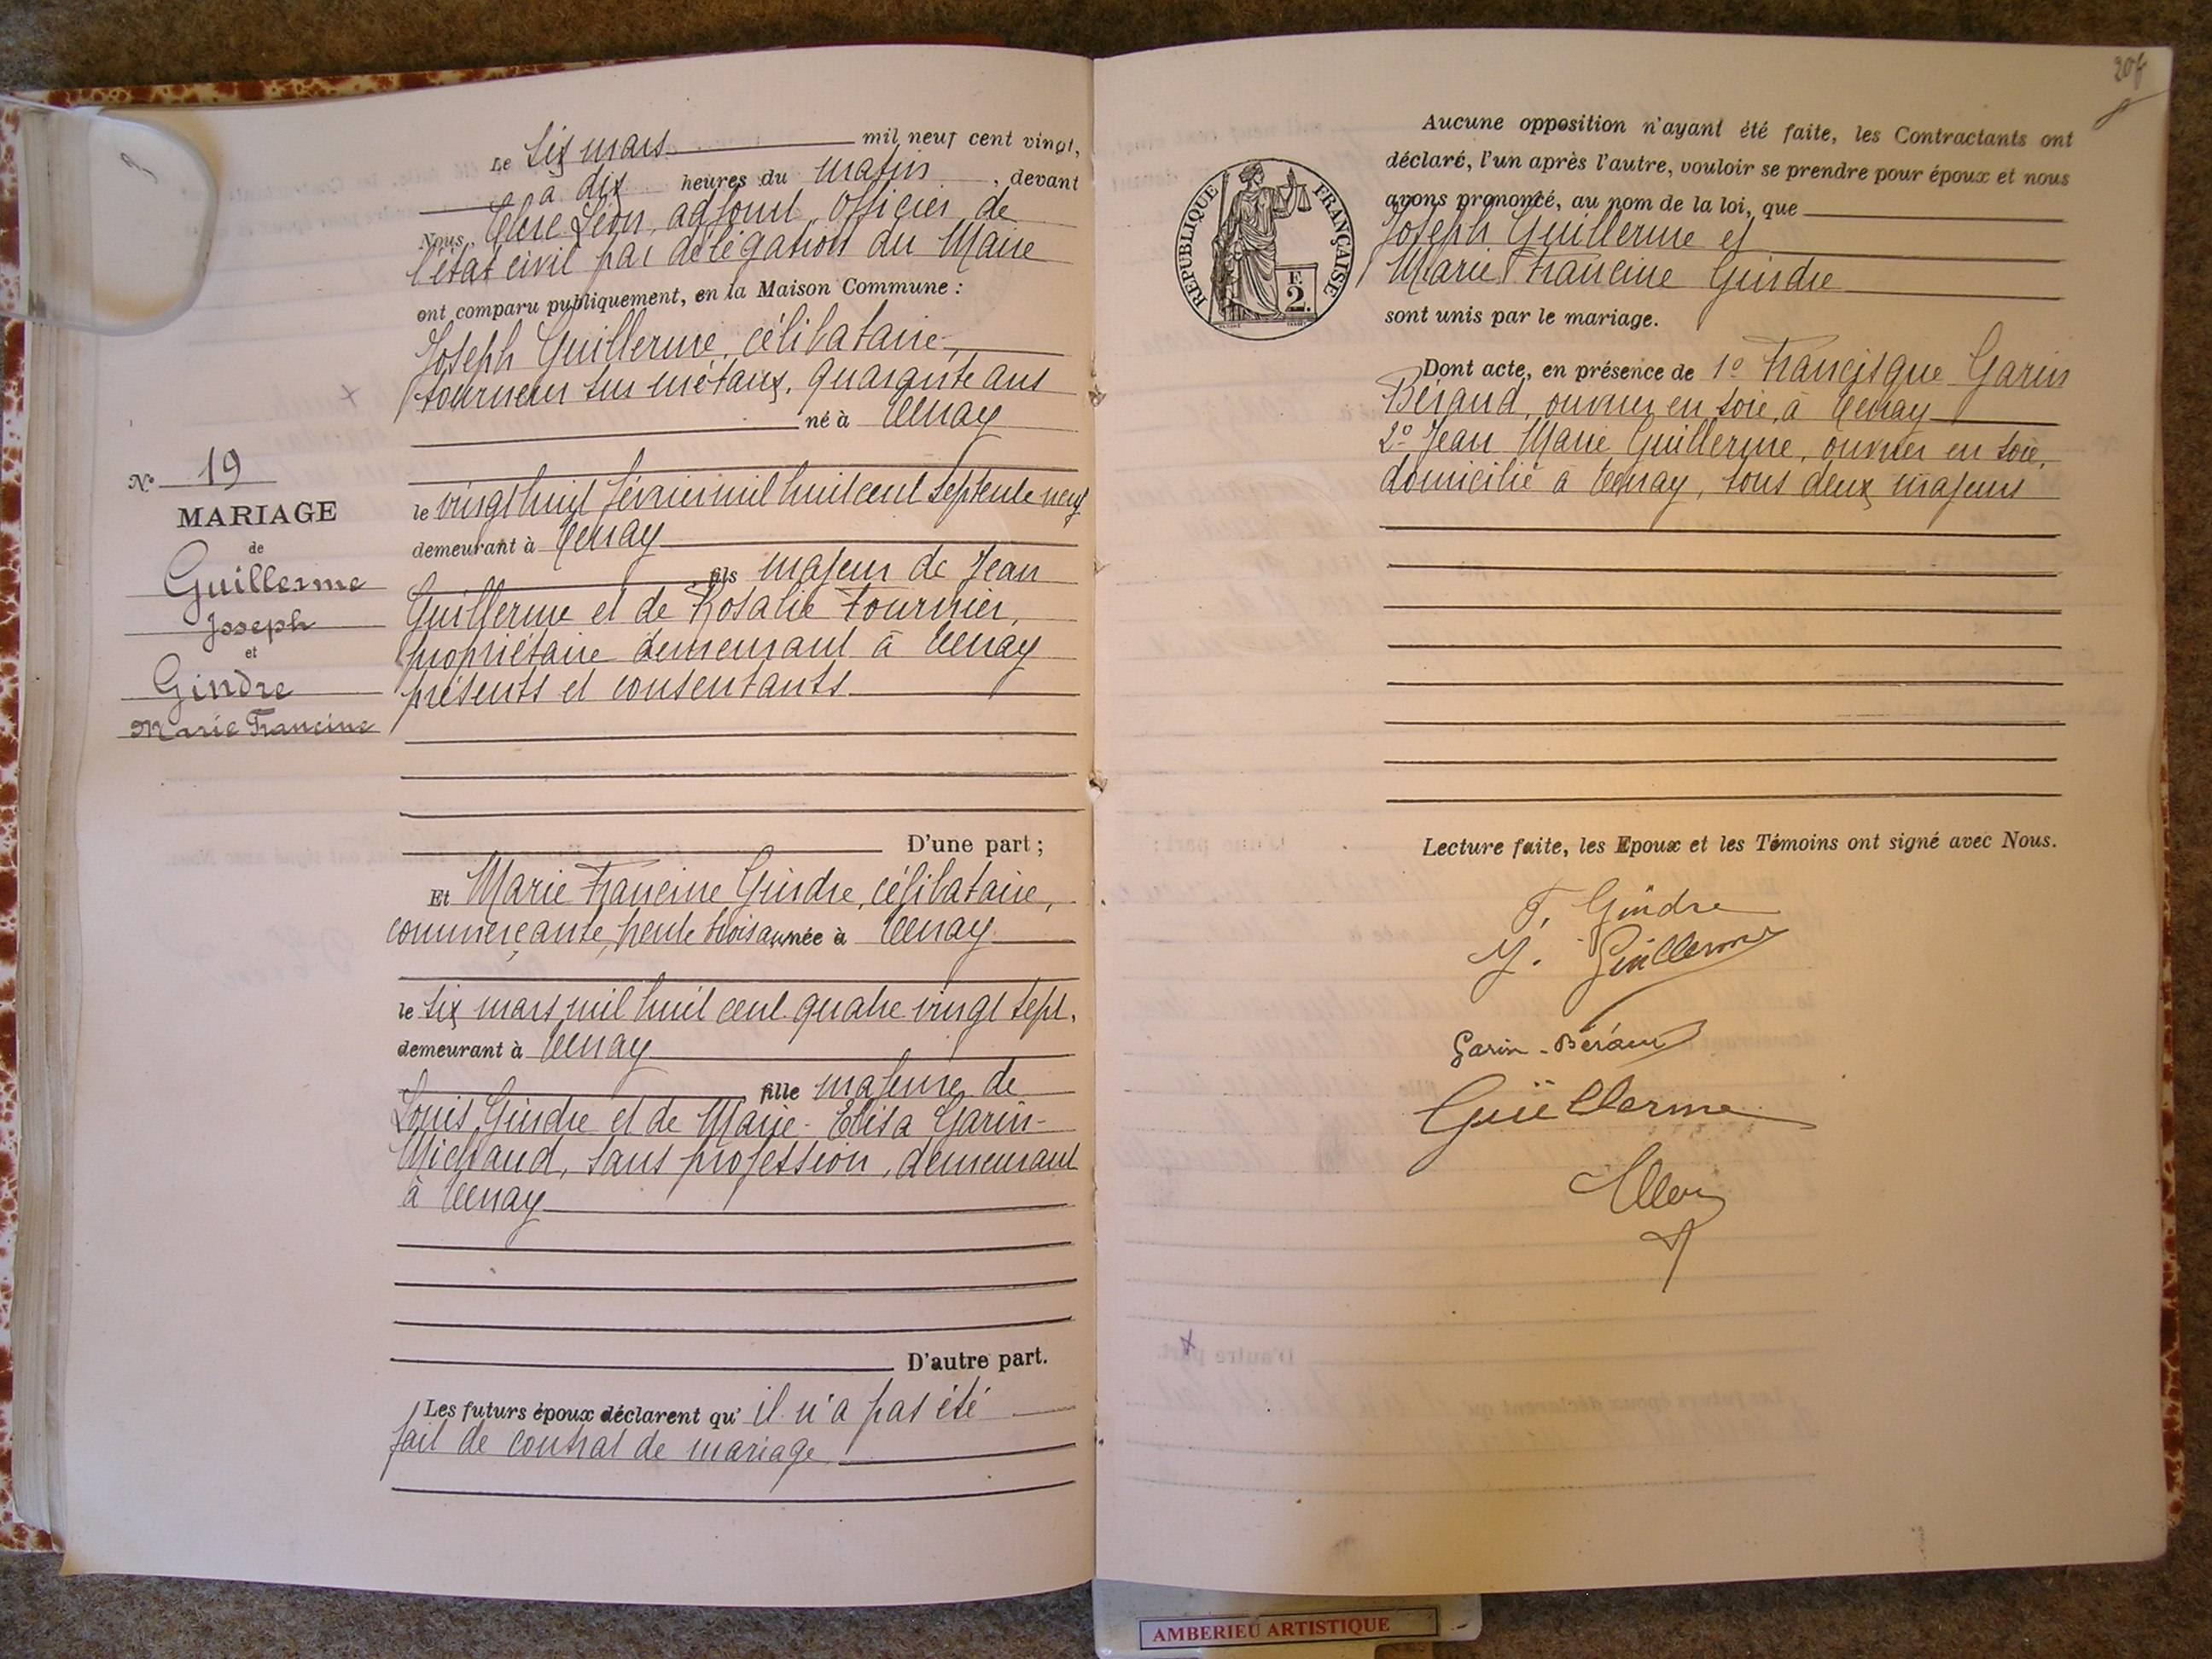 Le six mars mil neuf cent vingt,
à dix heures du matin, devant
Nous, Léon, adjoint, officier de
l'état civil par délégation du Maire
ont comparu publiquement, en la Maison Commune :
Joseph Guillerme, célibataire,
tourneur sur métaux, quarante ans
né à Tenay
No 19
MARIAGE
de
Guillerme
Joseph
et
Gindre
Marie Francine
le vingt huit février mil huit cent septente neuf
demeurant à Tenay
fils majeur de Jean
Guillerme et de Rosalie Fournier,
propriétaire demeurant à Tenay
présents et consentants
D'une part ;
Et Marie Francine Gindre, célibataire,
commerçante, trente trois ans née à Tenay
le six mars mil huit cent quatre vingt sept,
demeurant à Tenay
fille majeure de
Louis Gindre et de Marie-Elisa Garin-
Michaud, sans profession, demeurant
à Tenay
D'autre part.
Les futurs époux déclarent qu'il n'a pas été
fait de contrat de mariage.
Aucune opposition n'ayant été faite, les Contractants ont
déclaré, l'un après l'autre, vouloir se prendre pour époux et nous
avons prononcé, au nom de la loi, que
Joseph Guillerme et
Marie Francine Gindre
sont unis par le mariage.
REPUBLIQUE FRANÇAISE
F.
2.
Dont acte, en présence de 1° Francisque Garin
Béraud, ouvrier en soie, à Tenay
2° Jean Marie Guillerme, ouvrier en soie,
domicilié à Tenay, tous deux majeurs
Lecture faite, les Epoux et les Témoins ont signé avec Nous.
F. Gindre
J. Guillerme
Garin-Béraud
Guillerme
AMBERIEU ARTISTIQUE